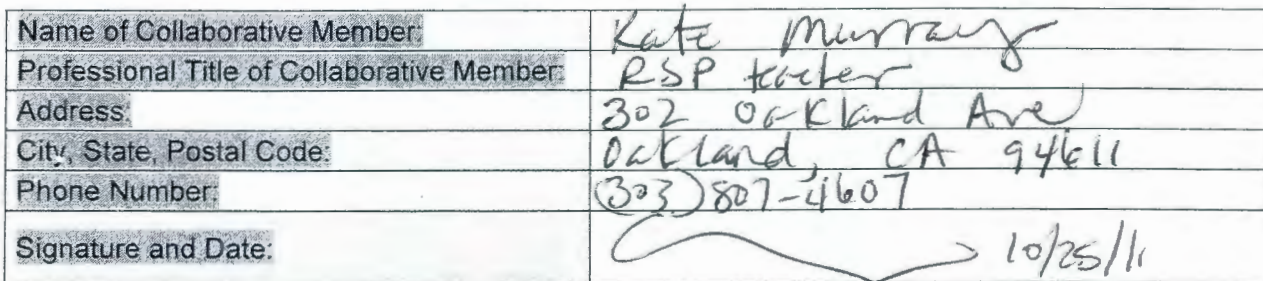 Name of Collaborative Member: Kate Murray
Professional Title of Collaborative Member: RSP teacher
Address: 302 Oakland Ave
City, State, Postal Code: Oakland, CA 94611
Phone Number: (303) 807-4607
Signature and Date: 10/25/11